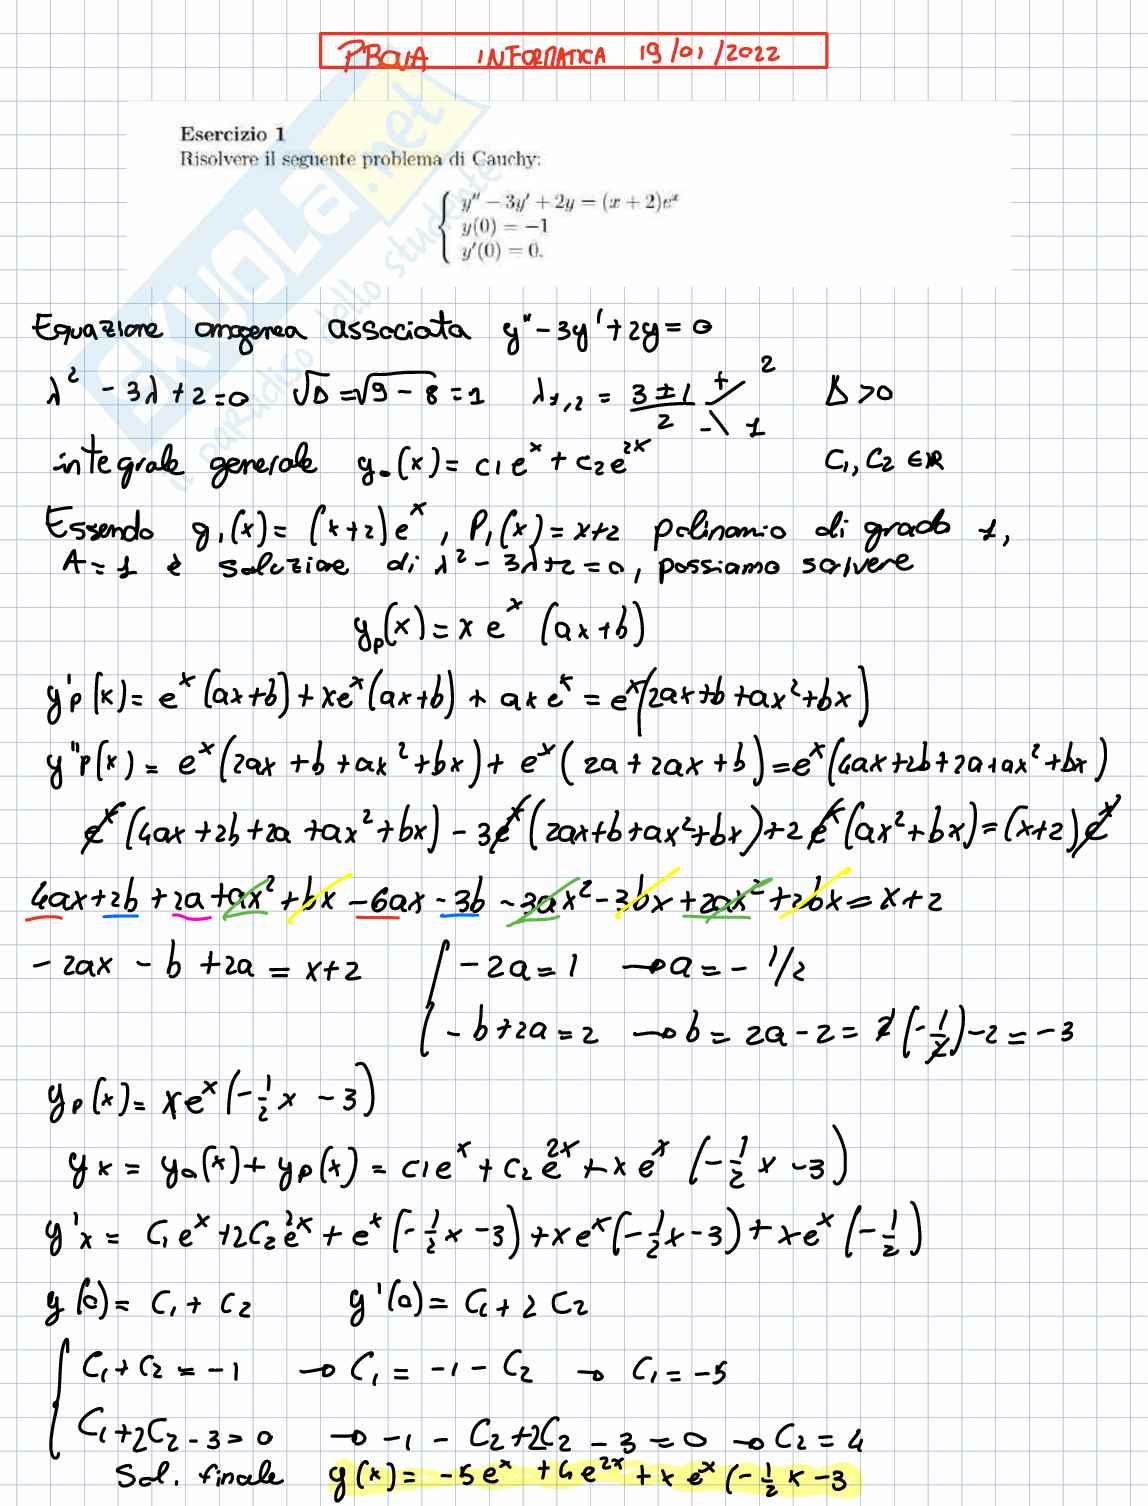 PROVA INFORMATICA 19/01/2022
Esercizio 1
Risolvere il seguente problema di Cauchy:
y'' − 3y' + 2y = (x + 2)eˣ
y(0) = −1
y'(0) = 0.
SKUOLA.net
il paradiso dello studente
Equazione omogenea associata y'' - 3y' + 2y = 0
λ² - 3λ + 2 = 0 √Δ = √9 - 8 = 1 λ₁,₂ = (3 ± 1)/2 + 2 - 1 Δ > 0
integrale generale y₀(x) = c1 eˣ + c2 e²ˣ C₁, C₂ ∈ ℝ
Essendo g₁(x) = (x+2) eˣ, P₁(x) = x+2 polinomio di grado 1,
A = 1 è soluzione di λ² - 3λ + 2 = 0, possiamo scrivere
yₚ(x) = x eˣ (ax+b)
y'p(x) = eˣ(ax+b) + xeˣ(ax+b) + axeˣ = eˣ(2ax+b+ax²+bx)
y''p(x) = eˣ(2ax+b+ax²+bx) + eˣ(2a+2ax+b) = eˣ(4ax+2b+2a+ax²+bx)
eˣ(4ax+2b+2a+ax²+bx) - 3eˣ(2ax+b+ax²+bx) + 2eˣ(ax²+bx) = (x+2)eˣ
4ax+2b+2a+ax²+bx-6ax-3b-3ax²-3bx+2ax²+2bx = x+2
-2ax - b + 2a = x+2 { -2a = 1 → a = -1/2
-b+2a = 2 → b = 2a-2 = 2(-1/2)-2 = -3
yₚ(x) = xeˣ(-1/2 x - 3)
yx = y₀(x) + yₚ(x) = c1eˣ + c2e²ˣ + xeˣ (-1/2 x - 3)
y'x = C₁eˣ + 2C₂e²ˣ + eˣ(-1/2 x - 3) + xeˣ(-1/2 x - 3) + xeˣ(-1/2)
y(0) = C₁ + C₂ y'(0) = C₁ + 2C₂
{ C₁ + C₂ = -1 → C₁ = -1 - C₂ → C₁ = -5
C₁ + 2C₂ - 3 = 0 → -1 - C₂ + 2C₂ - 3 = 0 → C₂ = 4
Sol. finale y(x) = -5eˣ + 4e²ˣ + xeˣ(-1/2 x - 3